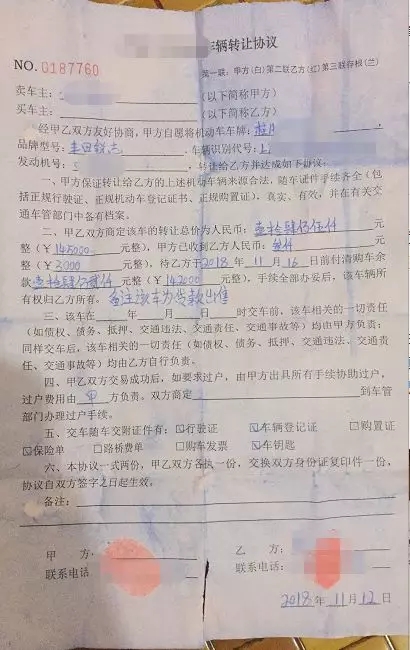 车辆转让协议
NO. 0187760
第一联：甲方(白)第二联乙方(红)第三联存根(兰)
卖车主： (以下简称甲方)
买车主： (以下简称乙方)
经甲乙双方友好协商，甲方自愿将机动车车牌：
品牌型号：丰田锐志 车辆识别代号：
发动机号： 转让给乙方并达成如下协议：
一、甲方保证转让给乙方的上述机动车辆来源合法，随车证件手续齐全(包
括正规行驶证、正规机动车登记证书、正规购置证)，真实、有效，并在有关交
通车管部门中备有档案。
二、甲乙双方商定该车的转让总价为人民币：壹拾肆万伍仟 元
整(￥145000 元整)，甲方已收到乙方人民币：叁仟 元
整(￥3000 元整)，待乙方于2018年11月16日前付清购车余
款壹拾肆万贰仟(￥142000 元整)，手续全部办妥后，该车辆所
有权归乙方所有。备注该车为贷款出售
三、该车在 年 月 日 时交车前、该车相关的一切责任
(如债权、债务、抵押、交通违法、交通责任、交通事故等)均由甲方负责；
同样交车后，该车相关的一切责任(如债权、债务、抵押、交通违法、交通责
任、交通事故等)均由乙方自行负责。
四、甲乙双方交易成功后，如要求过户，由甲方出具所有手续协助过户，
过户费用由 甲 方负责。双方商定 到车管
部门办理过户手续。
五、交车随车交附证件有：☑行驶证 ☑车辆登记证 □购置证
☑保险单 □路桥费单 □购车发票 ☑车钥匙
六、本协议一式两份，甲乙双方各执一份，交换双方身份证复印件一份，
协议自双方签字之日起生效。
备注：
甲 方： 乙 方：
联系电话 联系电话：
2018年11月12日